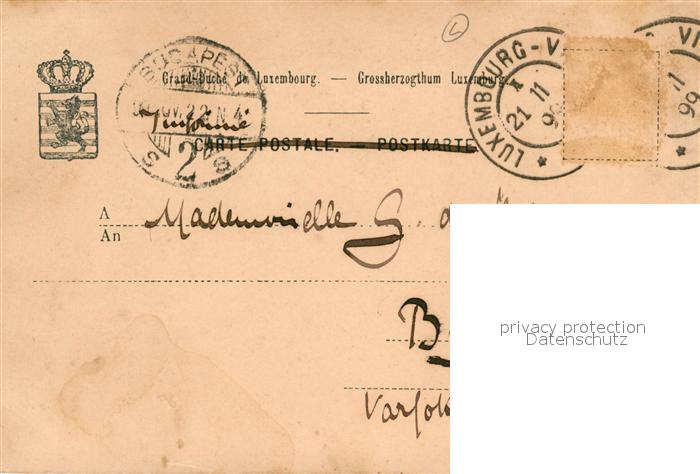 Grand-Duché de Luxembourg. — Grossherzogthum Luxemburg.
BUDAPEST
2
LUXEMBOURG-V
21 11 99
VI
11 99
Imprimé
CARTE POSTALE. — POSTKARTE
A Mademoiselle G. d
An
privacy protection
Datenschutz
B